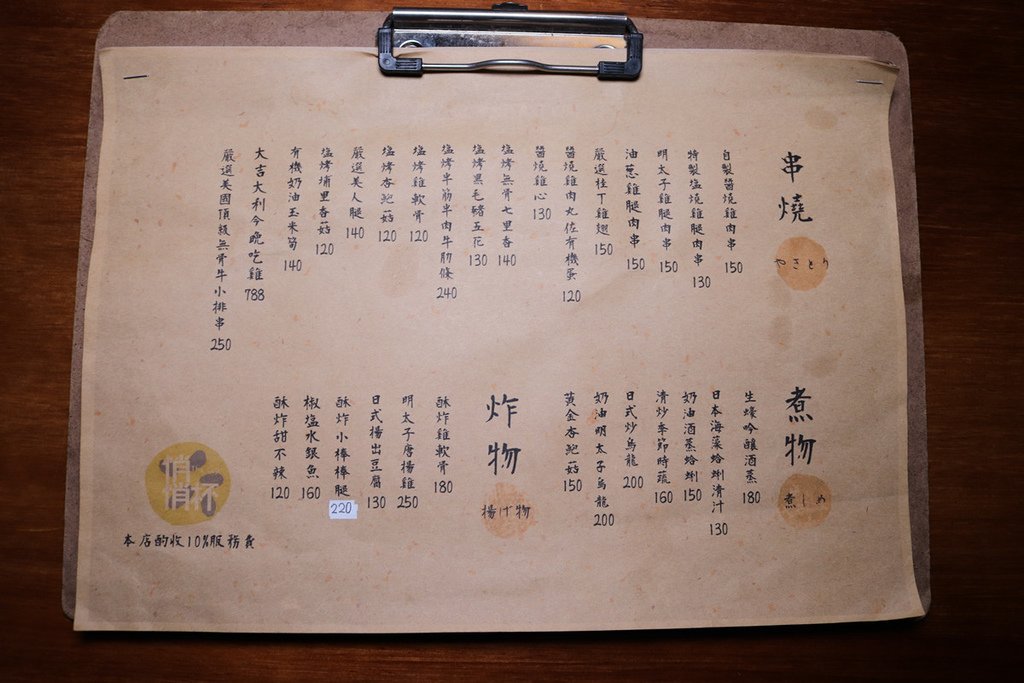 串燒
やきとり
自製醬燒雞肉串 150
特製塩燒雞腿肉串 130
明太子雞腿肉串 150
油蔥雞腿肉串 150
嚴選桂丁雞翅 150
醬燒雞肉丸佐有機蛋 120
醬燒雞心 130
塩烤無骨七里香 140
塩烤黑毛豬五花 130
塩烤半筋半肉牛肋條 240
塩烤雞軟骨 120
塩烤杏鮑菇 120
嚴選美人腿 140
塩烤埔里香菇 120
有機奶油玉米筍 140
大吉大利今晚吃雞 788
嚴選美國頂級無骨牛小排串 250
煮物
煮しめ
生蠔吟釀酒蒸 180
日本海藻蛤蜊清汁 130
奶油酒蒸蛤蜊 150
清炒季節時蔬 160
日式炒烏龍 200
奶油明太子烏龍 200
黃金杏鮑菇 150
炸物
揚げ物
酥炸雞軟骨 180
明太子唐揚雞 250
日式揚出豆腐 130
酥炸小棒棒腿 220
椒塩水銀魚 160
酥炸甜不辣 120
悄悄杯
本店酌收10%服務費